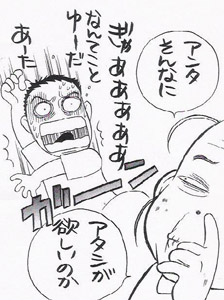 アンタ
そんなに
ぎゃあああああ
なんてこと
ゆーだ
あーた
ガガーーン
アタシが
欲しいのか